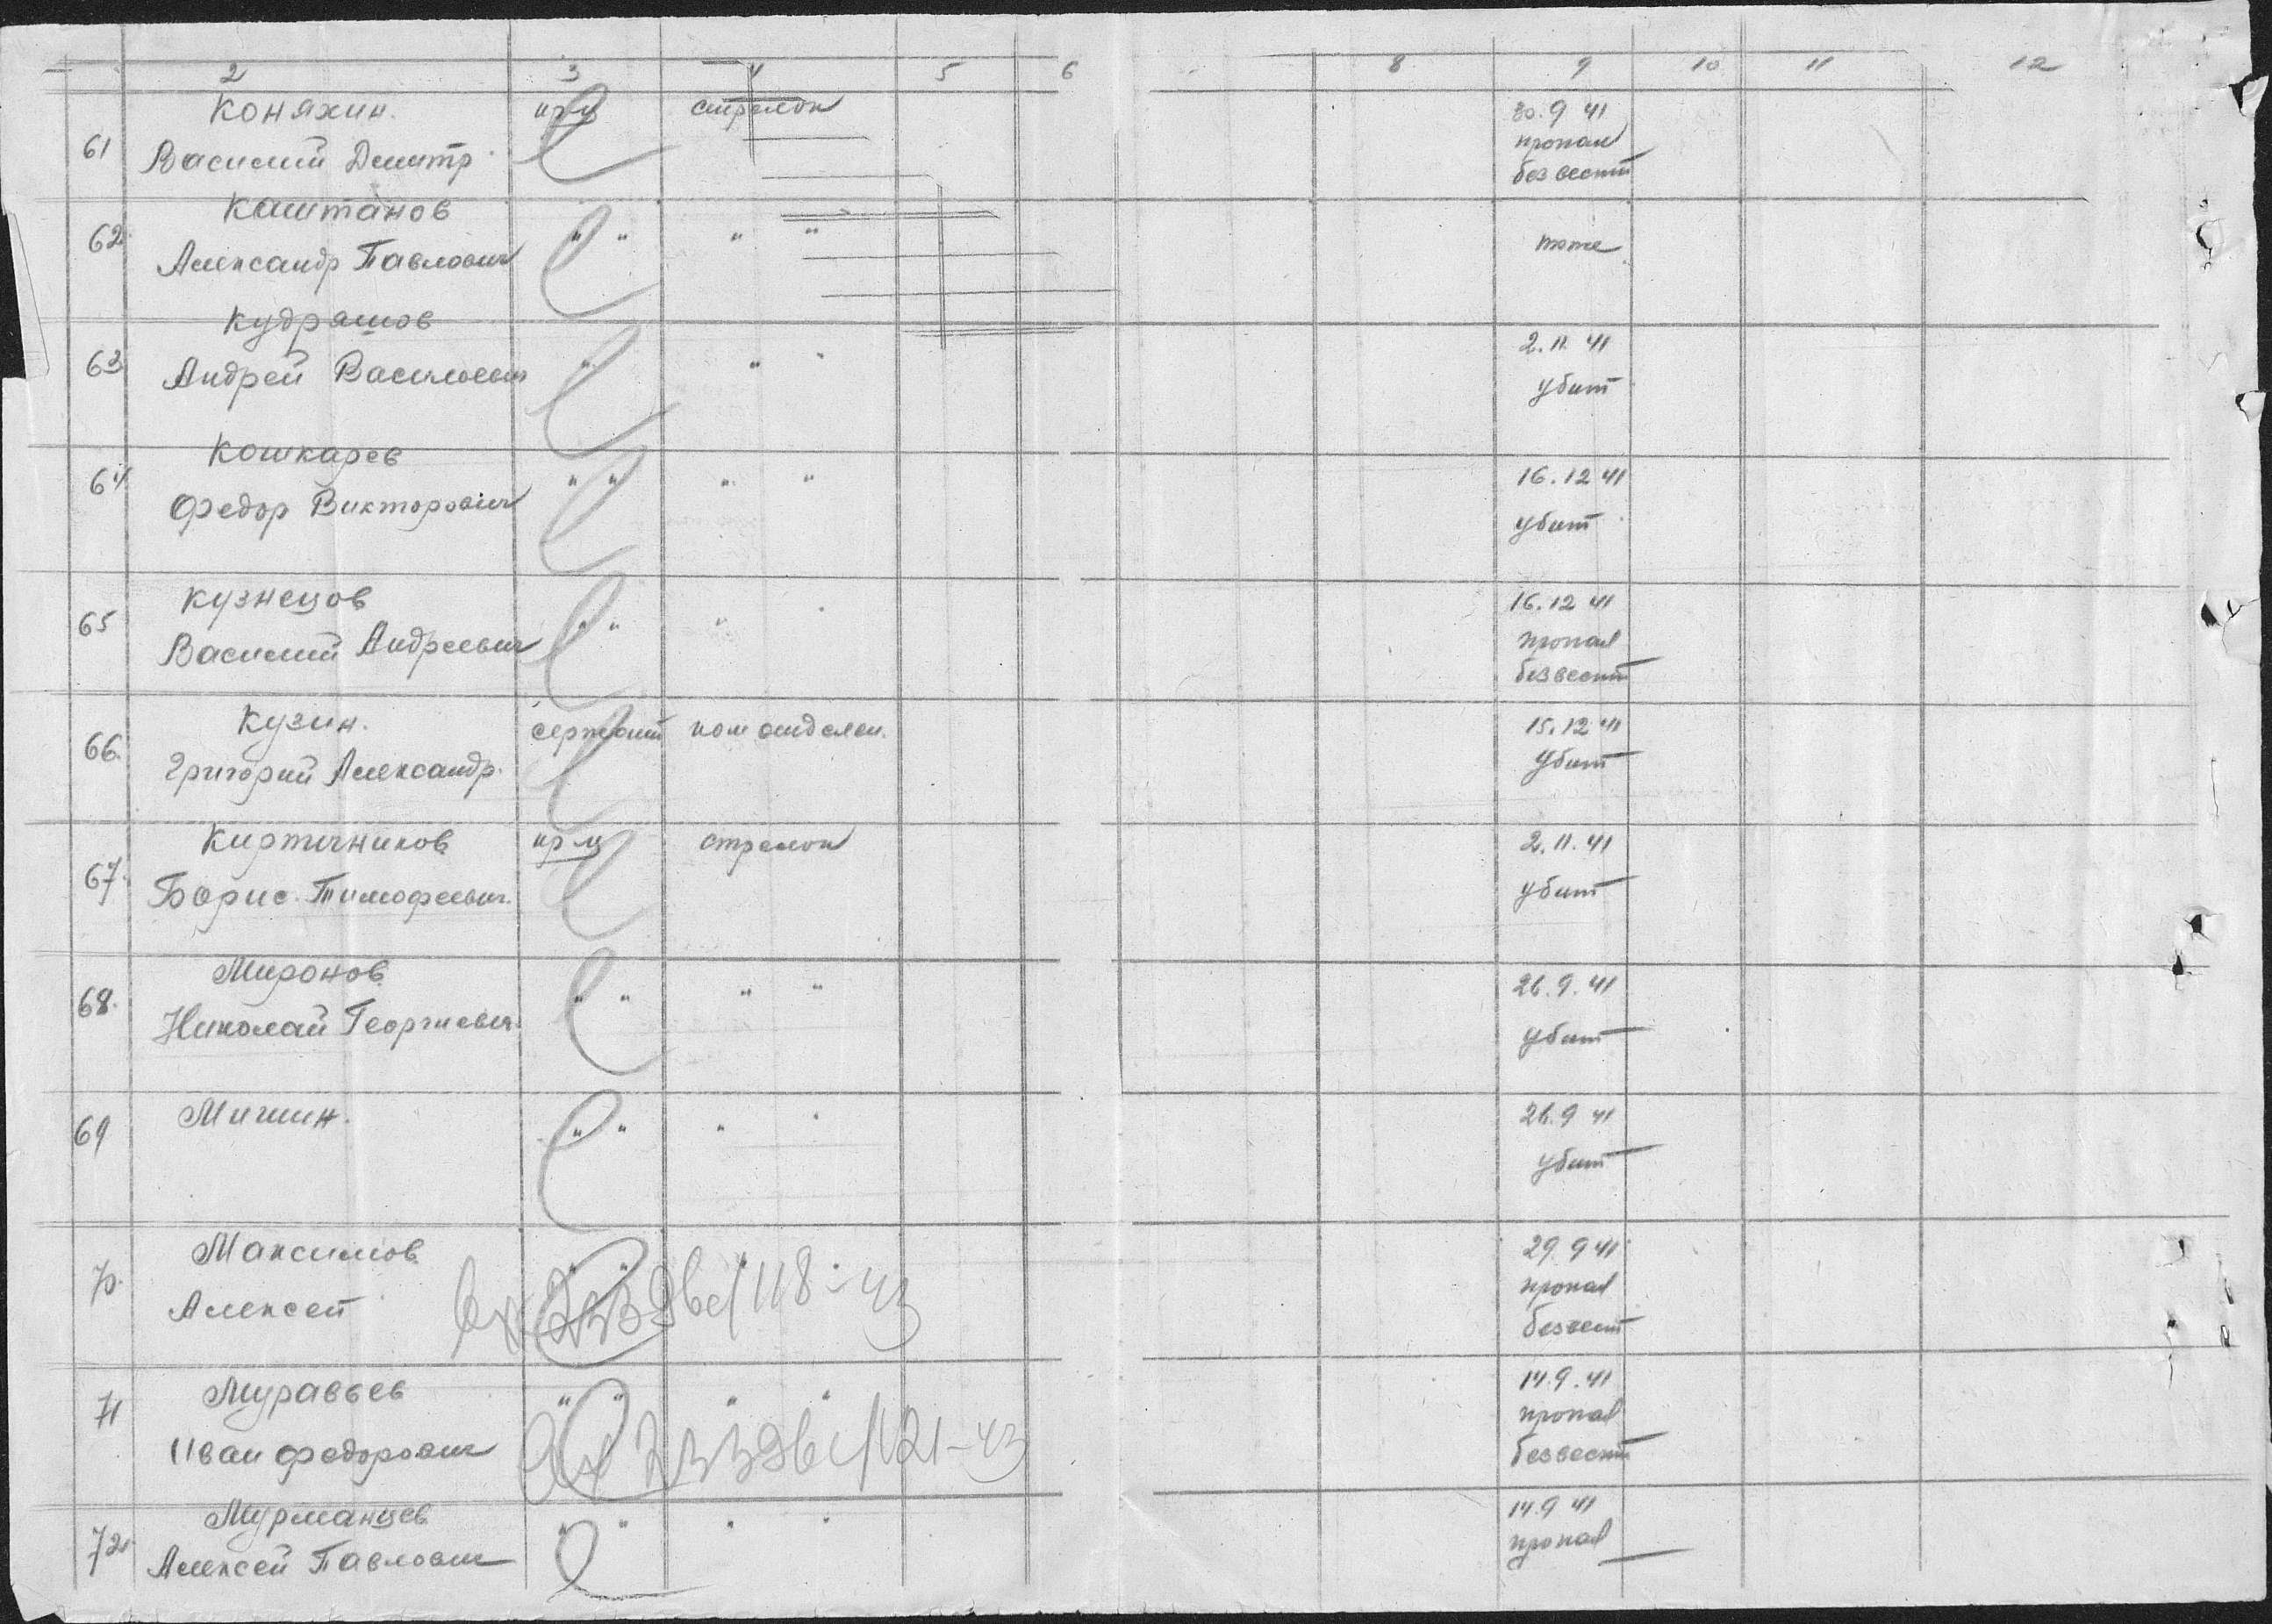 2 3 4 5 6 8 9 10 11 12
Коняхин. кр-ц стрелок 30.9 41
61 Василий Дмитр. пропал
без вести
Каштанов
62 Александр Павлович " " " " тоже
Кудряшов 2.11 41
63 Андрей Васильевич " " убит
Кошкарев 16.12 41
64 Федор Викторович " " " " убит
Кузнецов 16.12 41
65 Василий Андреевич " " " пропал
без вести
Кузин. сержант ком отделен. 15.12 41
66. Григорий Александр. убит
Кирпичников кр-ц стрелок 2.11.41
67. Борис Тимофеевич. убит
Миронов 26.9.41
68. Николай Георгиевич " " " " убит
Мишин. 26.9 41
69 " " " убит
Максимов 29.9 41
70. Алексей пропал
без вест
Муравьев " " " " 14.9.41
71 Иван Федорович пропал
без вести
Мурманцев 14.9 41
72. Алексей Павлович " " " " пропал